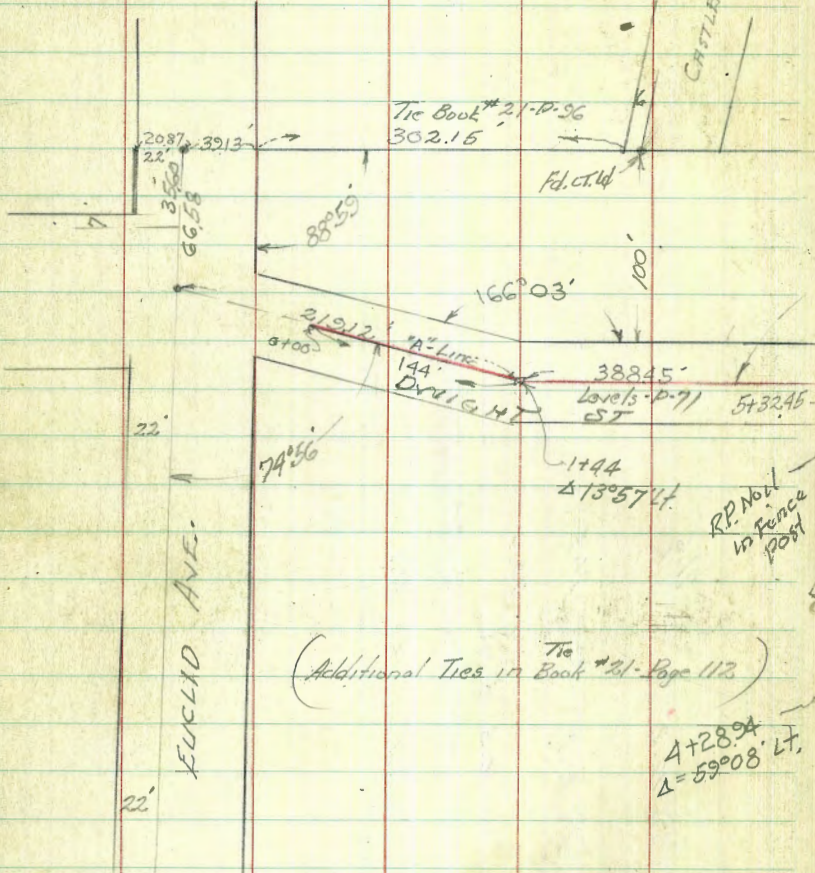 CASTLE
Tie Book #21-P-96
302.15'
20.87
22'
39.13'
Fd.CT.Ld
35.60
66.58
7
88°59'
100'
166°03'
219.12'
0+00
"A"-Line
144'
DWIGHT
388.45'
Levels-P-71
ST
5+32.45
22'
74°56'
1+44
Δ13°57' Lt.
R.P. Nail
in Fence
post
EUCLID AVE.
(Additional Ties in Tie Book #21-Page 112)
4+28.94
Δ=59°08' Lt.
22'